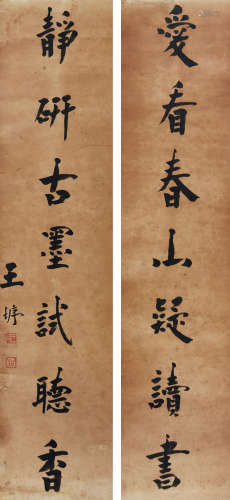 愛看春山疑讀書
靜研古墨試聽香
王垿